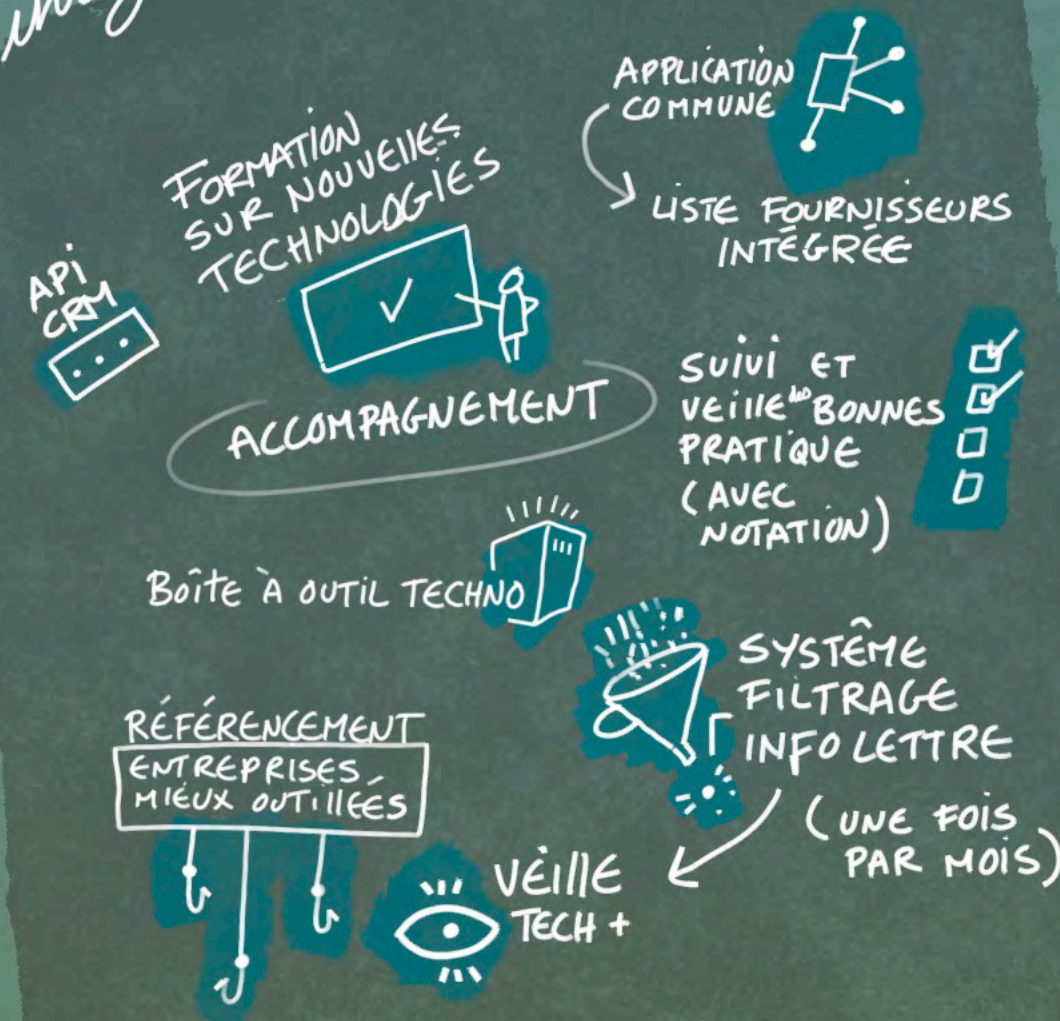 APPLICATION
COMMUNE
LISTE FOURNISSEURS
INTÉGRÉE
FORMATION
SUR NOUVELLES
TECHNOLOGIES
API
CRM
ACCOMPAGNEMENT
SUIVI ET
VEILLE des BONNES
PRATIQUE
(AVEC
NOTATION)
BOÎTE À OUTIL TECHNO
SYSTÊME
FILTRAGE
INFO LETTRE
(UNE FOIS
PAR MOIS)
RÉFÉRENCEMENT
ENTREPRISES
MIEUX OUTILLÉES
VEILLE
TECH +